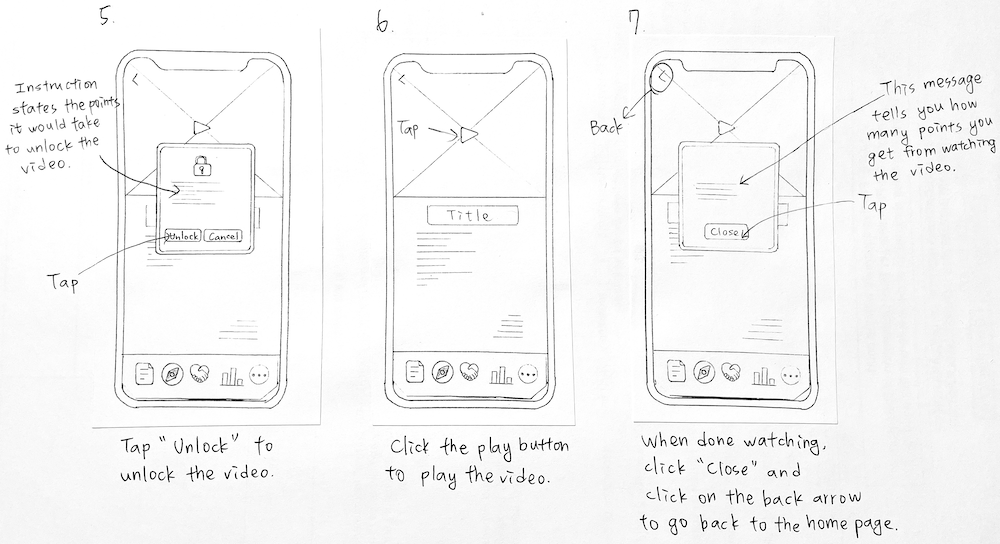 5.
Instruction
states the points
it would take
to unlock the
video.
Unlock
Cancel
Tap
Tap "Unlock" to
unlock the video.
6.
Tap
Title
Click the play button
to play the video.
7.
Back
This message
tells you how
many points you
get from watching
the video.
Tap
Close
When done watching,
click "Close" and
click on the back arrow
to go back to the home page.